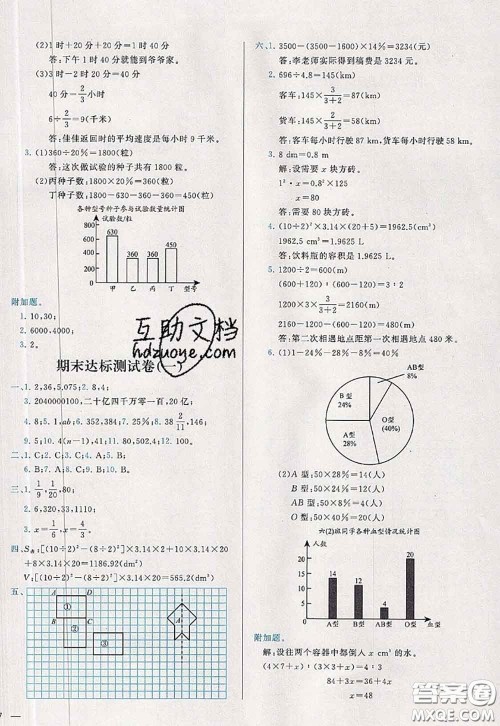 (2)1时+20分+20分=1时40分
答:下午1时40分就能到爷爷家。
(3)3时-2时20分=40分
40分=2/3小时
6÷2/3=9(千米)
答:佳佳返回时的平均速度是每小时9千米。
3. (1)360÷20%=1800(粒)
答:这次做试验的种子共有1800粒。
(2)丙种子数:1800×20%=360(粒)
丁种子数:1800-630-360-360=450(粒)
各种型号种子参与试验数量统计图
试验数/粒
800
600
400
200
0
630
330
360
450
甲 乙 丙 丁 型号
附加题。
1. 10,30;
2. 6000,4000;
3. 2。
期末达标测试卷(一)
一、1. 2,36,5,075; 2. 8,4;
3. 2040000100,二十亿四千万零一百,20亿;
4. 8; 5. 1,ab; 6. 352,384; 7. 25%; 8. 0.5;
9. 41; 10. 5,4; 11. 4,128; 12. 28.26; 13. 0.5。
二、1. C; 2. C; 3. C; 4. C; 5. A;
6. B; 7. A; 8. C; 9. B; 10. B。
三、1. 1/9,1/20,80;
2. 6,320,33,1110;
3. x=1/6,x=4/5。
四、S表:[(10÷2)²-(8÷2)²]×3.14×2+10×3.14×20
+8×3.14×20=1186.92(dm²)
V:[(10÷2)²-(8÷2)²]×3.14×20=565.2(dm³)
五、
A D
① 
B C
②
③
六、1. 3500-(3500-1600)×14%=3234(元)
答:李老师实际得到稿费是3234元。
2. 696÷4.8=145(km)
客车:145×3/(3+2)=87(km)
货车:145×2/(3+2)=58(km)
答:客车每小时行驶87km,货车每小时行驶58km。
3. 8 dm=0.8 m
解:设需要x块方砖。
1²·x=0.8²×50
x=32
答:需要32块方砖。
4. (10÷2)²×3.14×(20+5)=1962.5(cm³)
1962.5 cm³=1.9625 L
答:饮料瓶的容积是1.9625 L。
5. 1200÷2=600(m)
(600+1200):(1200-600)=3:1
1200-600÷(3+1)×3=750(m)
(1200+750):(1200-750)
1200-750
答:第二次相遇地点距第一次相遇地点480米。
6. (1)1-24%-28%-40%=8%
B型
24%
AB型
8%
O型
(40%)
A型
28%
(2)A型:50×28%=14(人)
B型:50×24%=12(人)
AB型:50×8%=4(人)
O型:50×40%=20(人)
六(2)班同学各种血型情况统计图
人数/人
25
20
15
10
5
0
14
12
4
20
A型 B型 AB型 O型 血型
附加题。
解:设往两个容器中都倒入x cm³的水。
(4×7+x):(3×12+x)=(3+1):(4+3)
84+3x=36+4x
x=48
互助文档
hdzuoye.com
答案圈
MXQE.COM